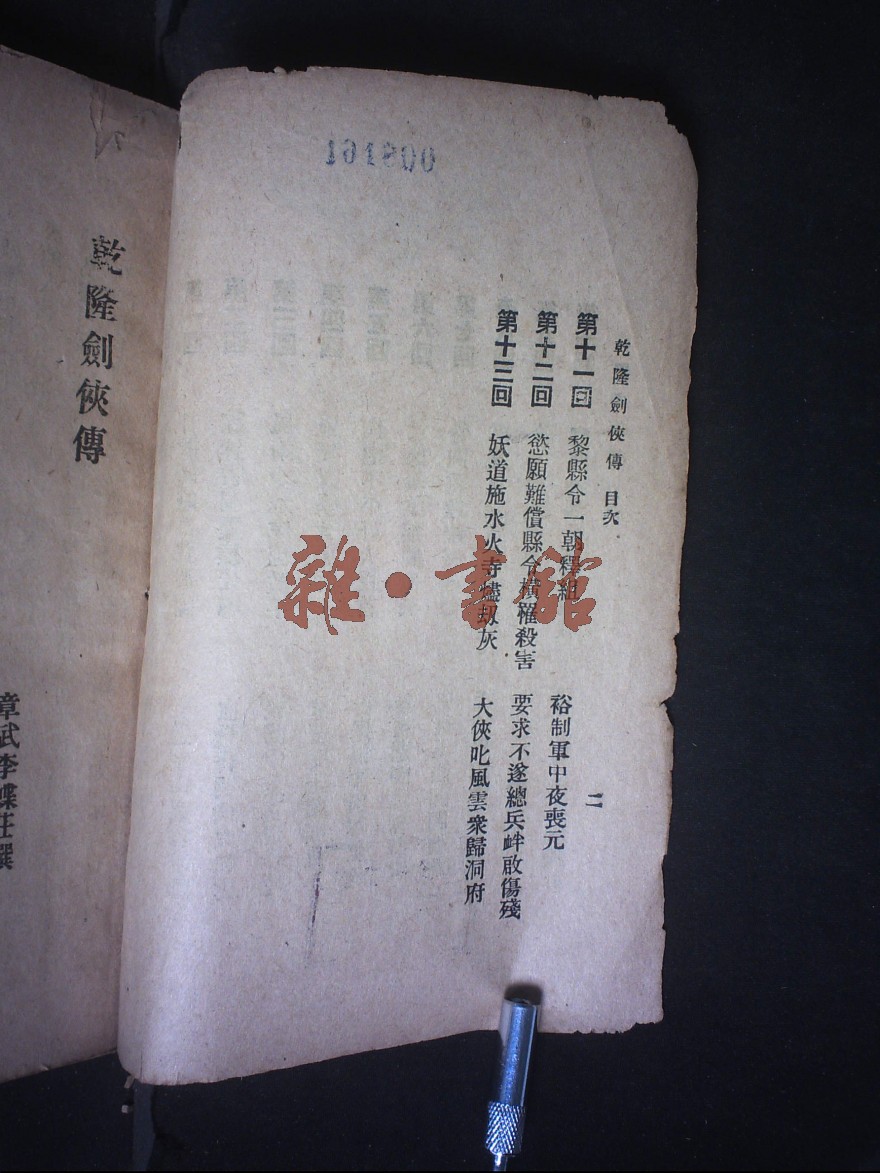 191800
乾隆劍俠傳 目次 二
第十一回 黎縣令一朝釋組 裕制軍中夜喪元
第十二回 慾願難償縣令橫罹殺害 要求不遂總兵衅啟傷殘
第十三回 妖道施水火寺燼刼灰 大俠叱風雲衆歸洞府
雜·書館
乾隆劍俠傳
章武李蝶莊撰